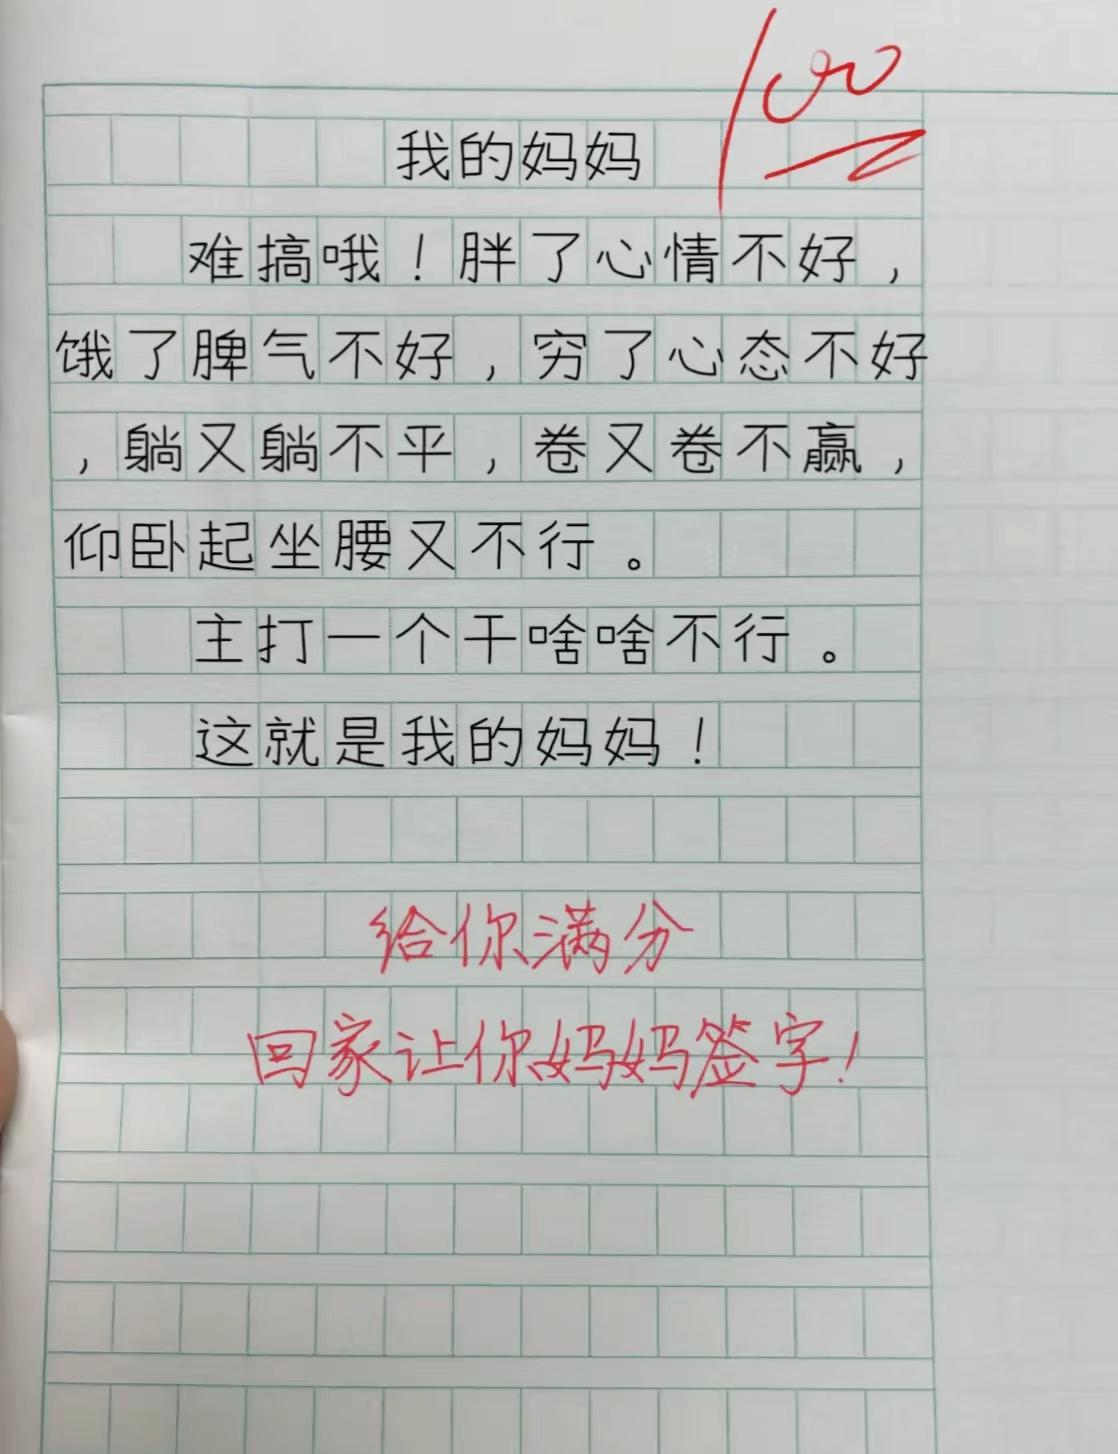 100
我的妈妈
难搞哦！胖了心情不好，
饿了脾气不好，穷了心态不好
，躺又躺不平，卷又卷不赢，
仰卧起坐腰又不行。
主打一个干啥啥不行。
这就是我的妈妈！
给你满分
回家让你妈妈签字！